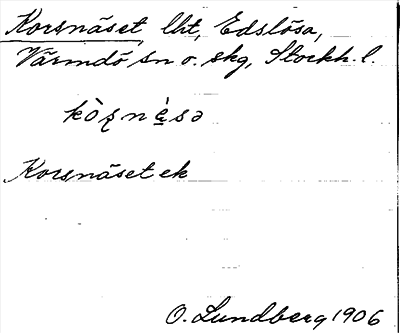 Korsnäset lht, Edslösa,
Värmdö sn o. skg, Stockh. l.
kòʂnè̱sə
Korsnäset ek
O. Lundberg 1906